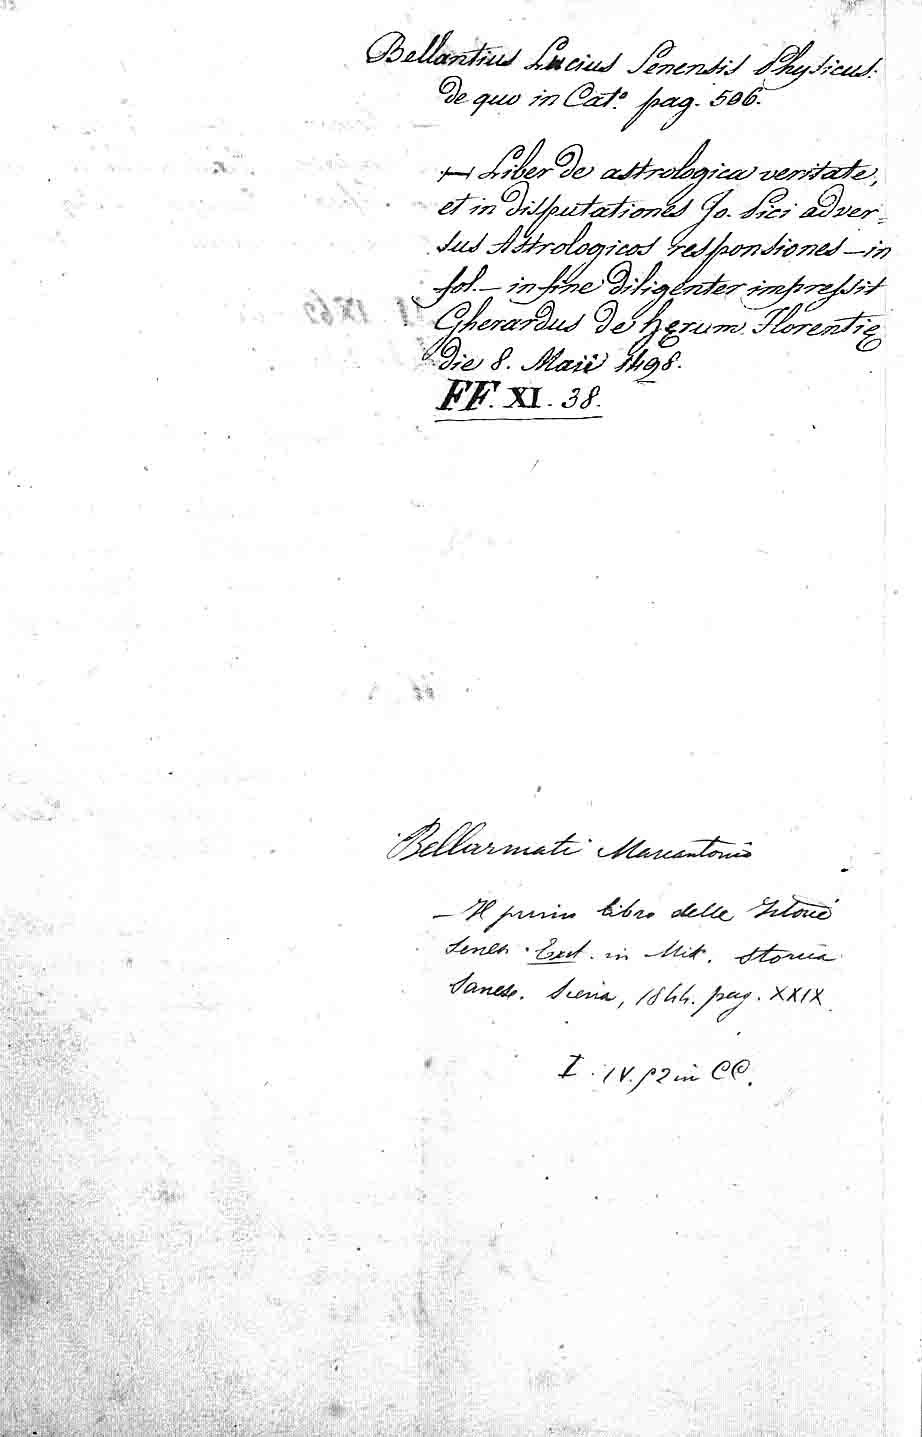 Bellantius Lucius Senensis Physicus:
de quo in Cat.º pag. 506.
— Liber de astrologica veritate,
et in disputationes Jo. Pici adver=
sus Astrologicos responsiones — in
fol. — in fine diligenter impressit
Gherardus de hęrum. Florentię
die 8. Maii 1498.
FF. XI. 38.
Bellarmati Marcantonio
— Il primo libro delle Istorie
Senesi. in Storia
Sanese. Siena, 1844. pag. XXIX.
I. IV. 52 in CC.